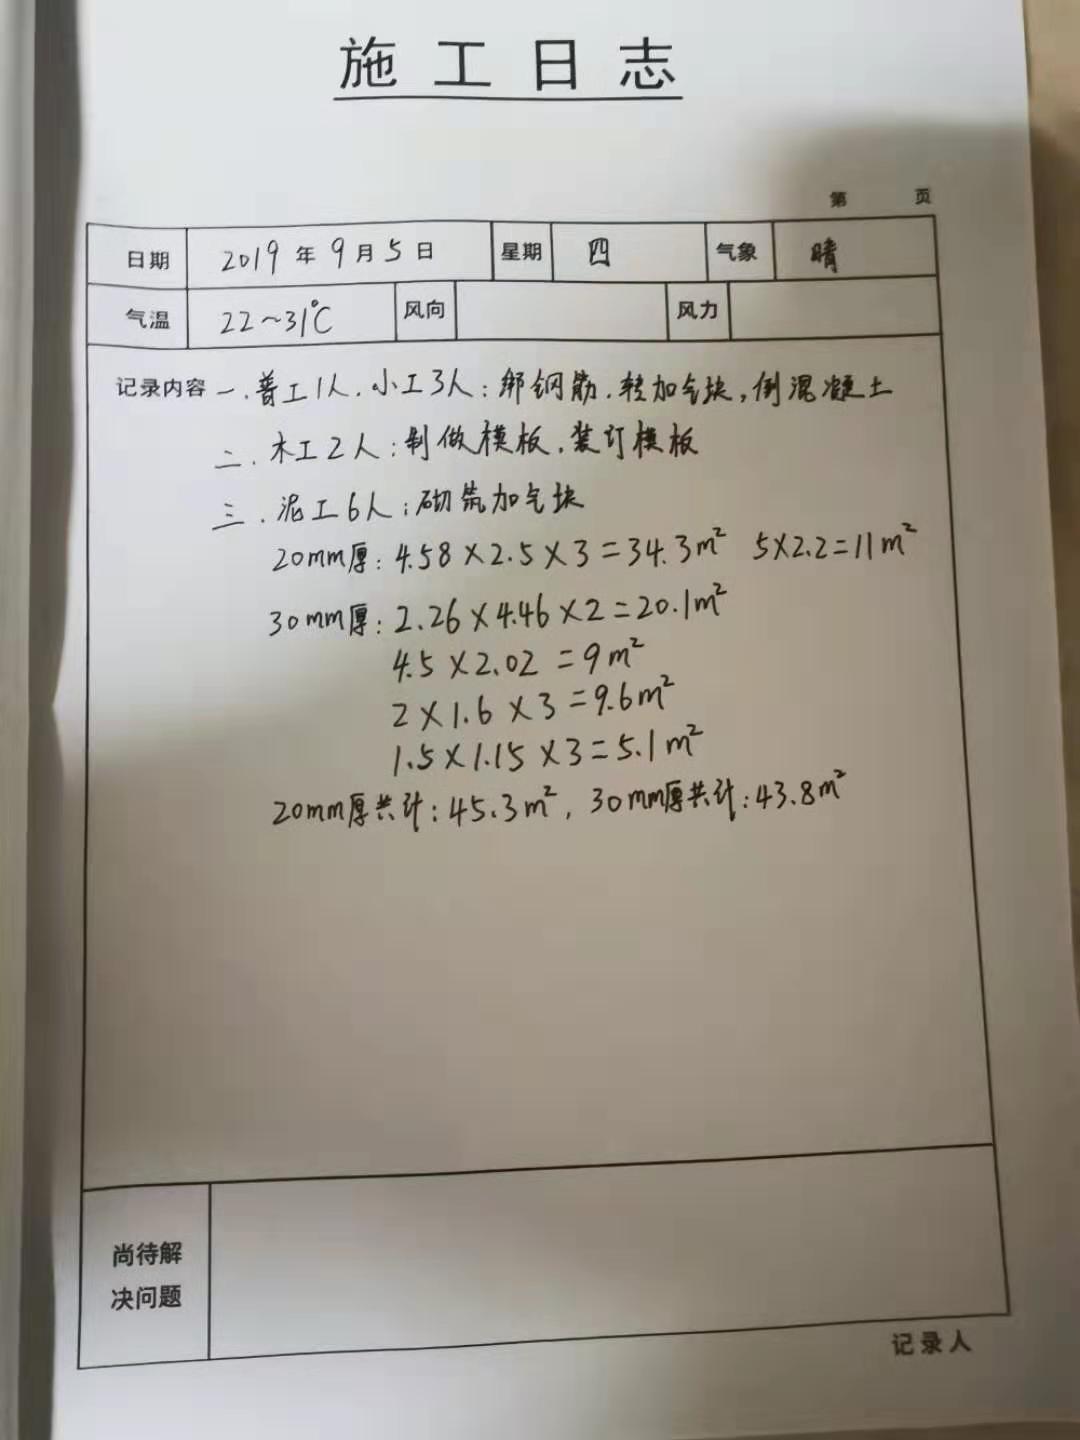 施工日志
第 页
日期 2019年9月5日 星期 四 气象 晴
气温 22~31℃ 风向 风力
记录内容 一.普工1人.小工3人:绑钢筋.转加气块,倒混凝土
二.木工2人:制做模板.装订模板
三.泥工6人:砌筑加气块
20mm厚:4.58×2.5×3=34.3m² 5×2.2=11m²
30mm厚:2.26×4.46×2=20.1m²
4.5×2.02=9m²
2×1.6×3=9.6m²
1.5×1.15×3=5.1m²
20mm厚共计:45.3m²,30mm厚共计:43.8m²
尚待解
决问题
记录人